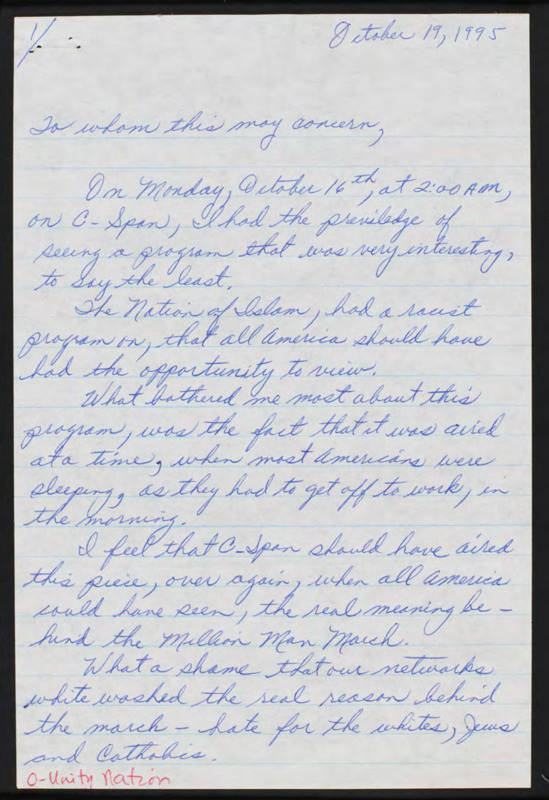 1/
October 19, 1995
To whom this may concern,
On Monday, October 16th, at 2:00 AM,
on C-Span, I had the priviledge of
seeing a program that was very interesting,
to say the least.
The Nation of Islam, had a racist
program on, that all America should have
had the opportunity to view.
What bothered me most about this
program, was the fact that it was aired
at a time, when most Americans were
sleeping, as they had to get off to work, in
the morning.
I feel that C-Span should have aired
this piece, over again, when all America
could have seen, the real meaning be-
hind the Million Man March.
What a shame that our networks
white washed the real reason behind
the march - hate for the whites, Jews
and Catholics.
O-Unity Nation